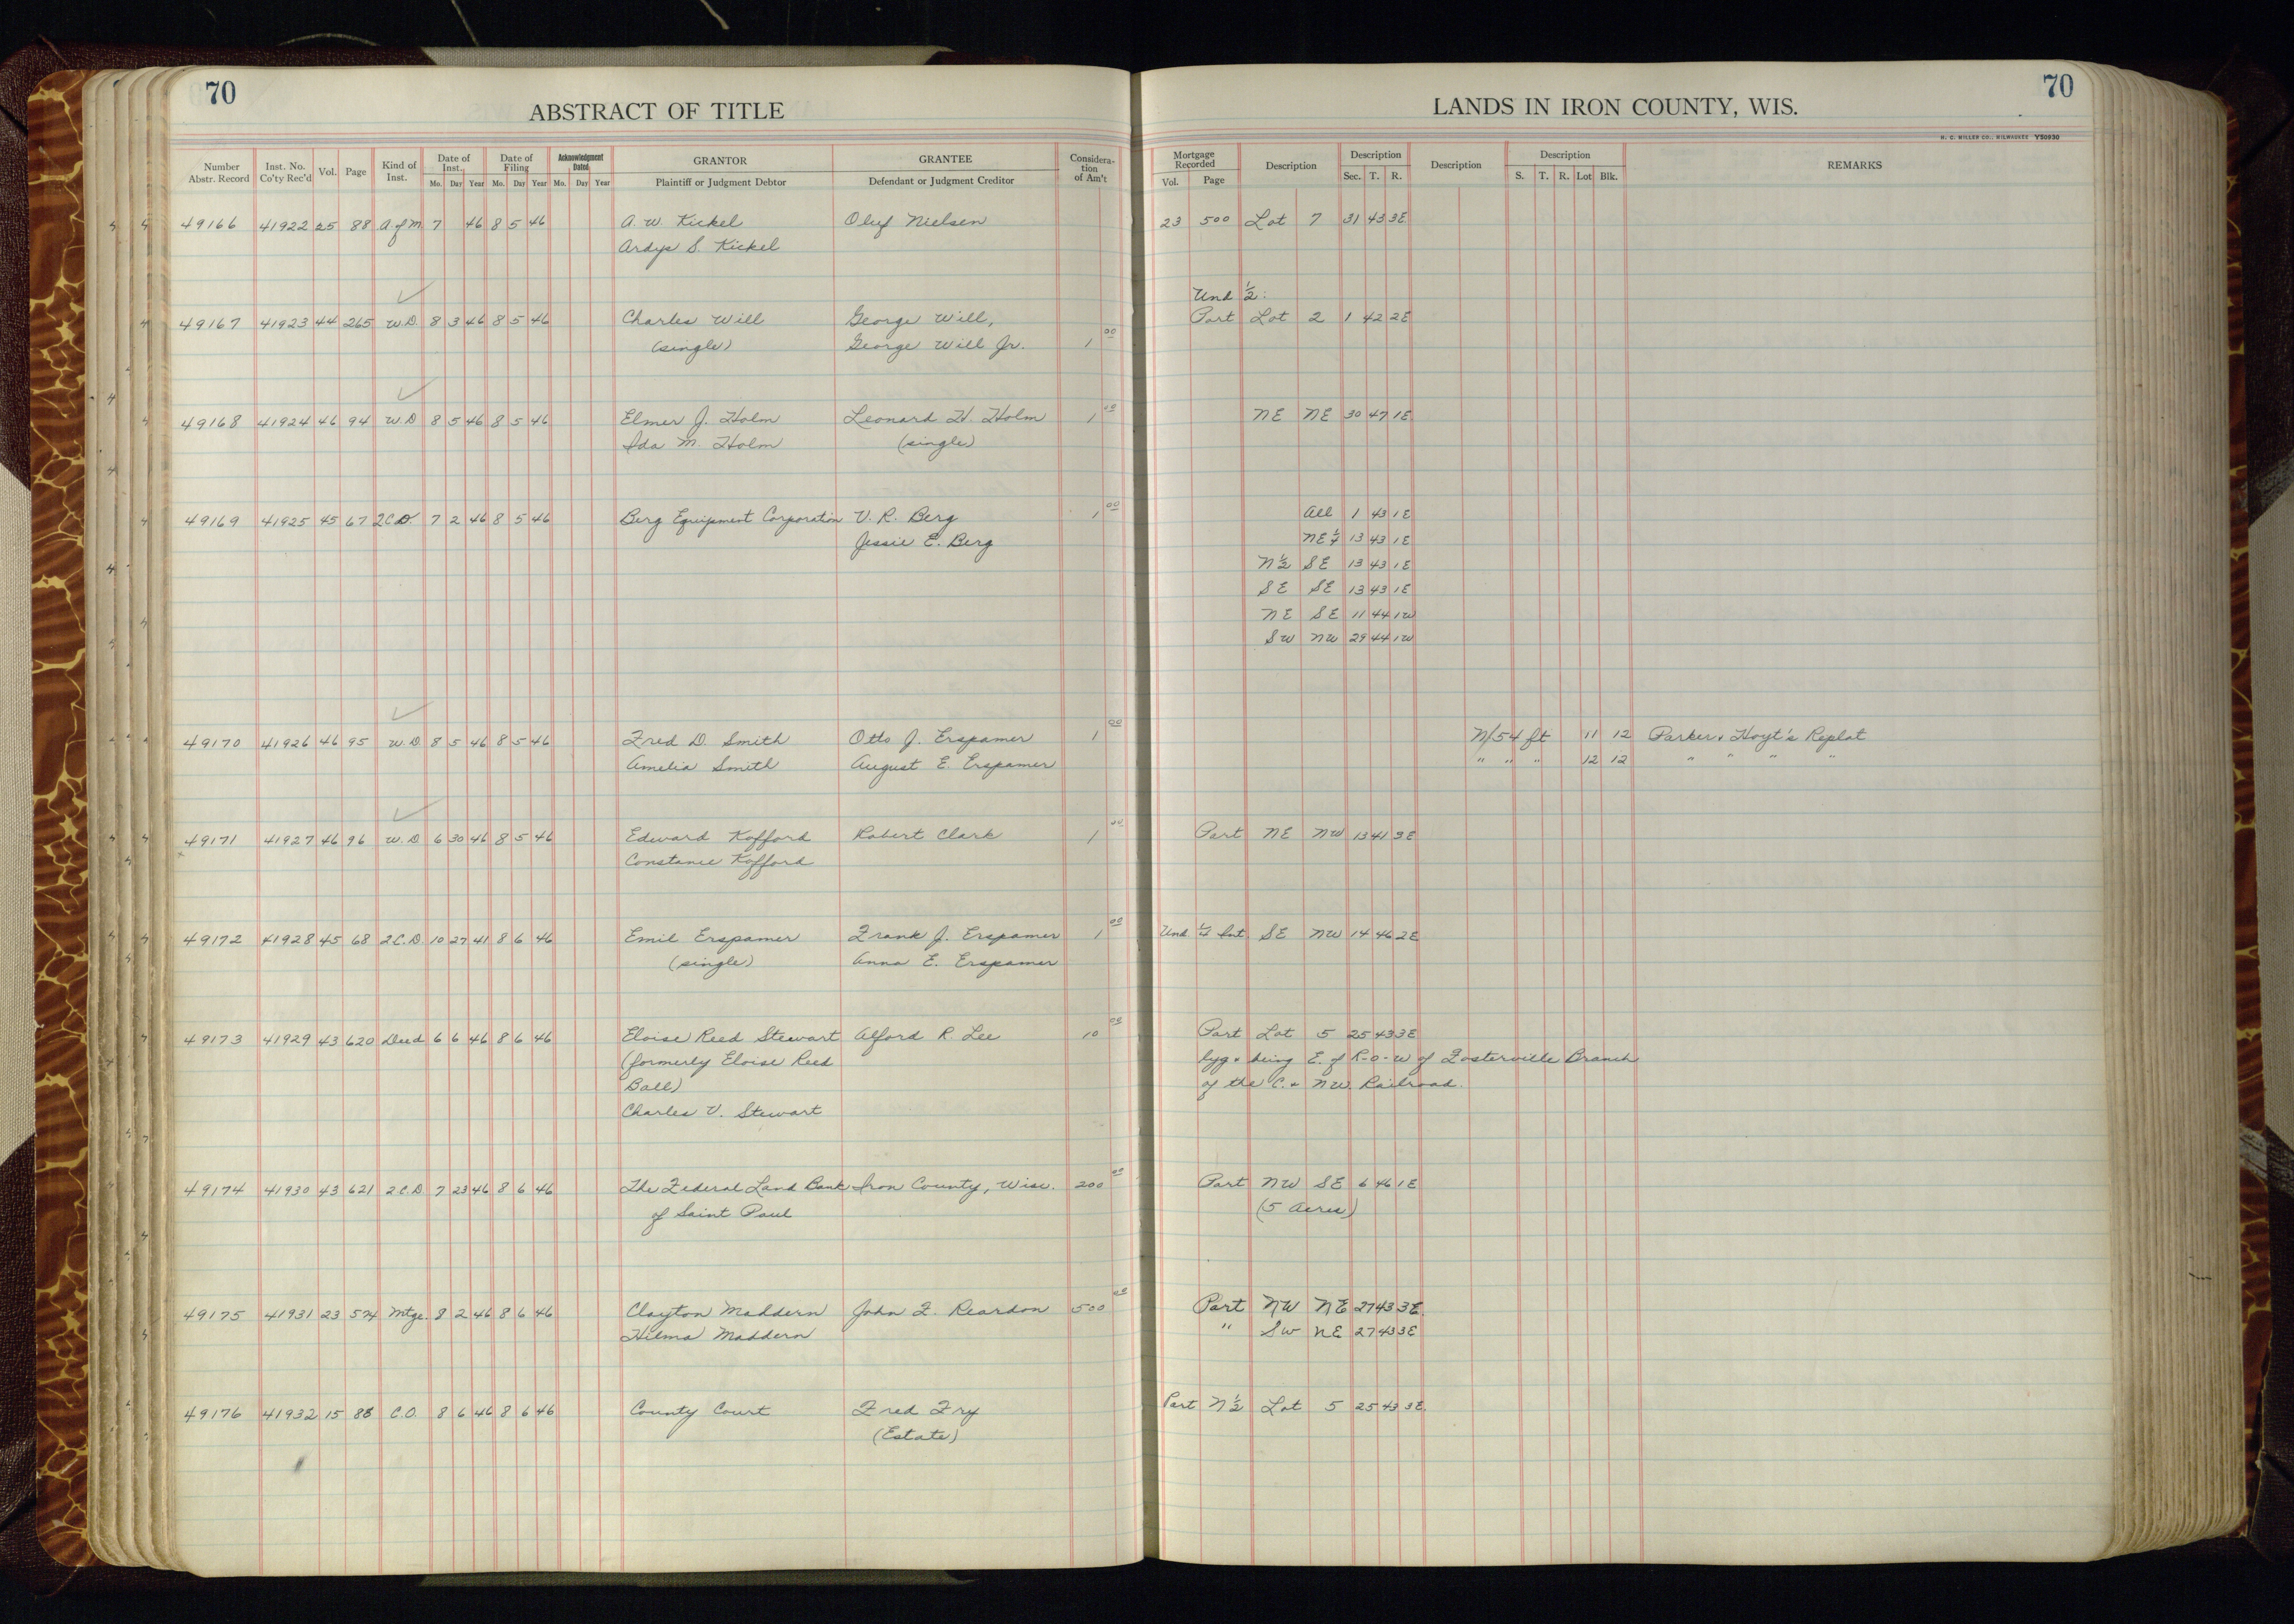 70
ABSTRACT OF TITLE
LANDS IN IRON COUNTY, WIS.
70
H. C. MILLER CO., MILWAUKEE Y50930
Number Abstr. Record Inst. No. Co'ty Rec'd Vol. Page Kind of Inst. Date of Inst. Mo. Day Year Date of Filing Mo. Day Year Acknowledgment Dated Mo. Day Year GRANTOR Plaintiff or Judgment Debtor GRANTEE Defendant or Judgment Creditor Consideration of Am't Mortgage Recorded Vol. Page Description Description Sec. T. R. Description Description S. T. R. Lot Blk. REMARKS
49166 41922 25 88 A. of M. 7 46 8 5 46 A. W. Kickel Oluf Nielsen 23 500 Lot 7 31 43 3E
Ardys S. Kickel
Und 1/2:
49167 41923 44 265 W.D. 8 3 46 8 5 46 Charles Will George Will, Part Lot 2 1 42 2E
(single) George Will Jr. 1 00
49168 41924 46 94 W.D 8 5 46 8 5 46 Elmer J. Holm Leonard H. Holm 1 00 NE NE 30 47 1E
Ida M. Holm (single)
49169 41925 45 67 2C.D. 7 2 46 8 5 46 Berg Equipment Corporation V. R. Berg 1 00 All 1 43 1E
Jessie E. Berg NE 1/4 13 43 1E
N 1/2 SE 13 43 1E
SE SE 13 43 1E
NE SE 11 44 1W
SW NW 29 44 1W
49170 41926 46 95 W.D. 8 5 46 8 5 46 Fred D. Smith Otto J. Erspamer 1 00 N/54 ft 11 12 Parker & Hoyt's Replat
Amelia Smith August E. Erspamer " " " 12 12 " " " "
49171 41927 46 96 W.D 6 30 46 8 5 46 Edward Kofford Robert Clark 1 00 Part NE NW 13 41 3E
Constance Kofford
49172 41928 45 68 2C.D. 10 27 41 8 6 46 Emil Erspamer Frank J. Erspamer 1 00 Und Int SE NW 14 46 2E
(single) Anna E. Erspamer
49173 41929 43 620 Deed 6 6 46 8 6 46 Eloise Reed Stewart Alford R. Lee 10 00 Part Lot 5 25 43 3E
(formerly Eloise Reed lyg & being E. of R-O-W of Fosterville Branch
Ball) of the C. & NW. Railroad.
Charles V. Stewart
49174 41930 43 621 2.C.D. 7 23 46 8 6 46 The Federal Land Bank Iron County, Wisc. 200 00 Part NW SE 6 46 1E
of Saint Paul (5 acres)
49175 41931 23 574 Mtge. 8 2 46 8 6 46 Clayton Maddern John F. Reardon 500 00 Part NW NE 27 43 3E.
Hilma Maddern " SW NE 27 43 3E
49176 41932 15 88 C.O. 8 6 46 8 6 46 County Court Fred Fry Part N 1/2 Lot 5 25 43 3E.
(Estate)